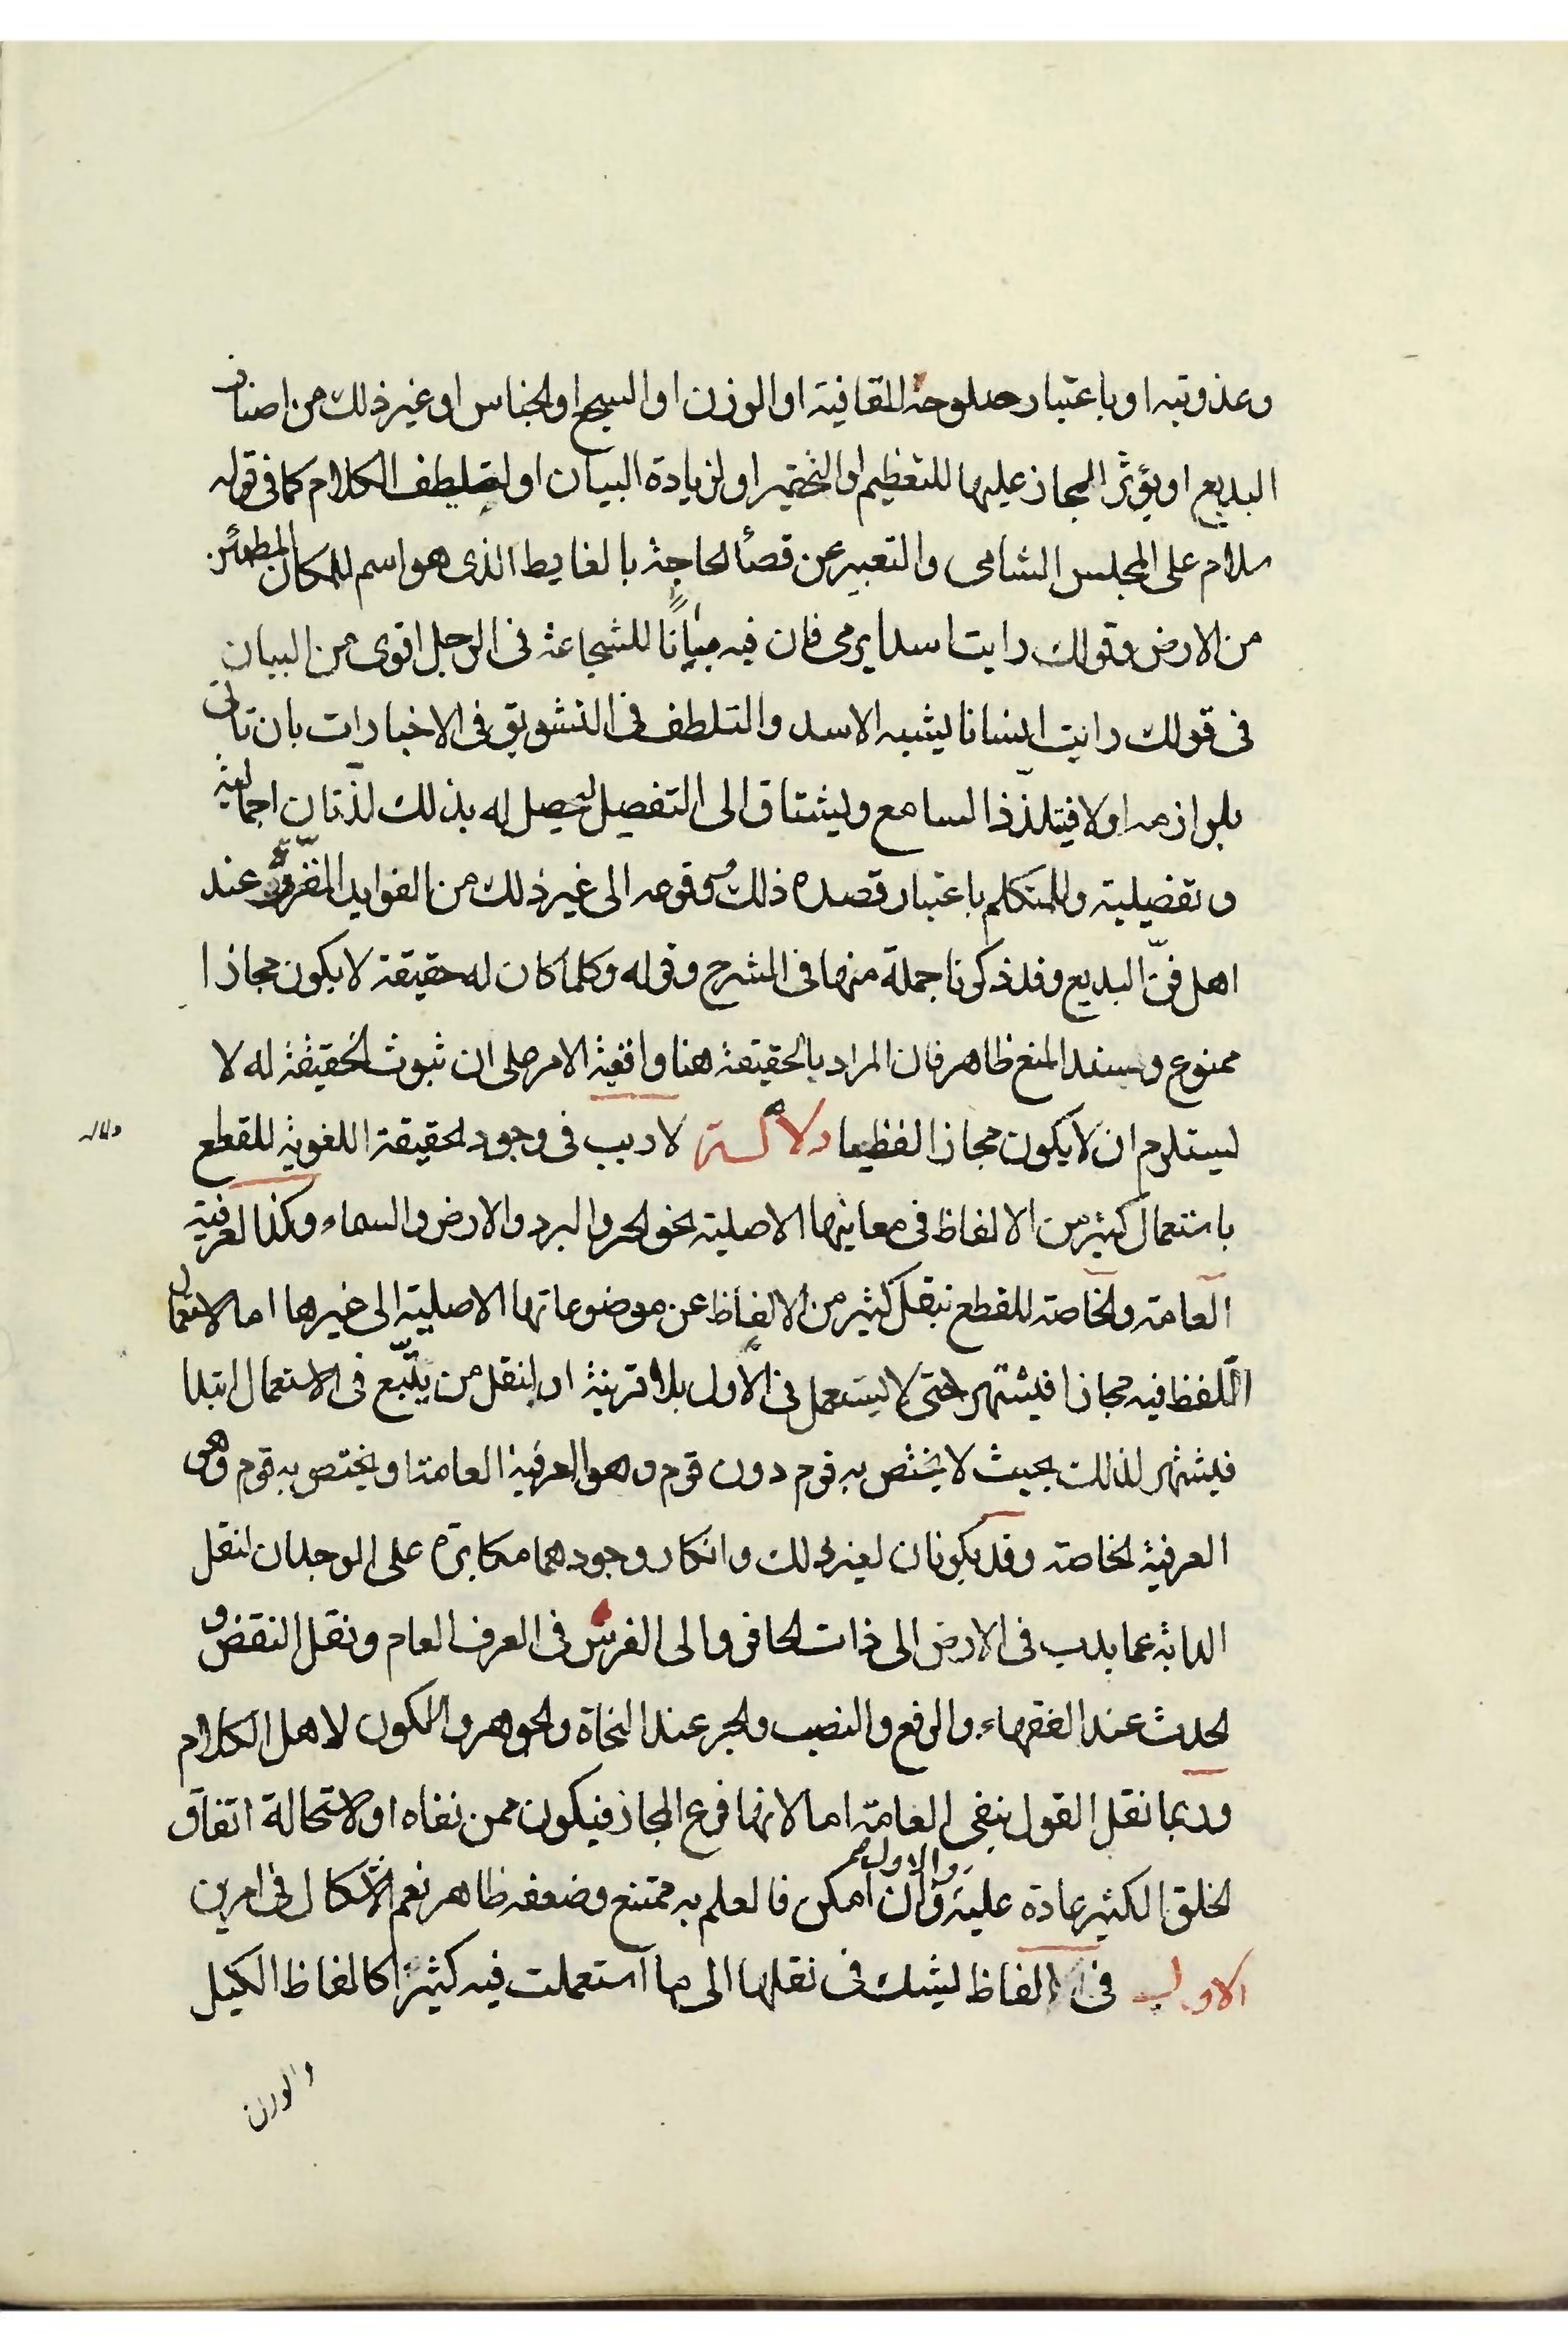 وعذوبته او باعتبار صلوحه للقافية او الوزن او السجع او الجناس او غير ذلك من اصناف
البديع او يؤثر المجاز عليها للتعظيم او التحقير او لزيادة البيان او لتلطف الكلام كما فى قوله
سلام على المجلس السامى والتعبير عن قضأ الحاجة بالغايط الذى هو اسم للمكان المطمئن
من الارض وقولك رايت اسدا يرمى فان فيه بيانا للشجاعة فى الرجل اقوى من البيان
فى قولك رايت انسانا يشبه الاسد والتلطف فى التشويق فى الاخبارات بان تاتى
بلوازمه اولا فيتلذذ السامع ويشتاق الى التفصيل ليحصل له بذلك لذتان اجمالية
وتفصيلية وللمتكلم باعتبار قصده ذلك ووقوعه الى غير ذلك من الفوايد المقررة عند
اهل فنّ البديع وقد ذكرنا جملة منها فى الشرح وقوله وكلما كان له حقيقة لا يكون مجازا
ممنوع وسند المنع ظاهر فان المراد بالحقيقة هنا واقعية الامر على ان ثبوت الحقيقة له لا
يستلزم ان لا يكون مجازا لفظيا لا ريب فى وجود الحقيقة اللغوية للقطع
باستعمال كثير من الالفاظ فى معانيها الاصلية نحو الحر والبرد والارض والسماء وكذا العرفية
العامة والخاصة للقطع بنقل كثير من الالفاظ عن موضوعاتها الاصلية الى غيرها اما لاستعمال
اللفظ فيه مجازا فيشتهر حتى لا يستعمل فى الاول بلا قرينة او لنقل من يتّبع فى الاستعمال ابتدا
فيشتهر لذلك بحيث لا يختص به قوم دون قوم وهو العرفية العامة او يختص به قوم وهى
العرفية الخاصة وقد يكونان لغير ذلك وانكار وجودهما مكابرة على الوجدان لنقل
الدابة عما يدب فى الارض الى ذات الحافر والى الفرس فى العرف العام ونقل النقض و
الحدث عند الفقهاء والرفع والنصب والجر عند النحاة والجوهر والكون لاهل الكلام
وربما نقل القول بنفى العامّة اما لانها فرع المجاز فيكون ممن نفاه او لاستحالة اتفاق
الخلق الكثير عادة عليه وان امكن فالعلم به ممتنع وضعفه ظاهر نعم الاشكال فى امرين
الاول فى الفاظ يشك فى نقلها الى ما استعملت فيه كثيرا كالفاظ الكيل
والوزن